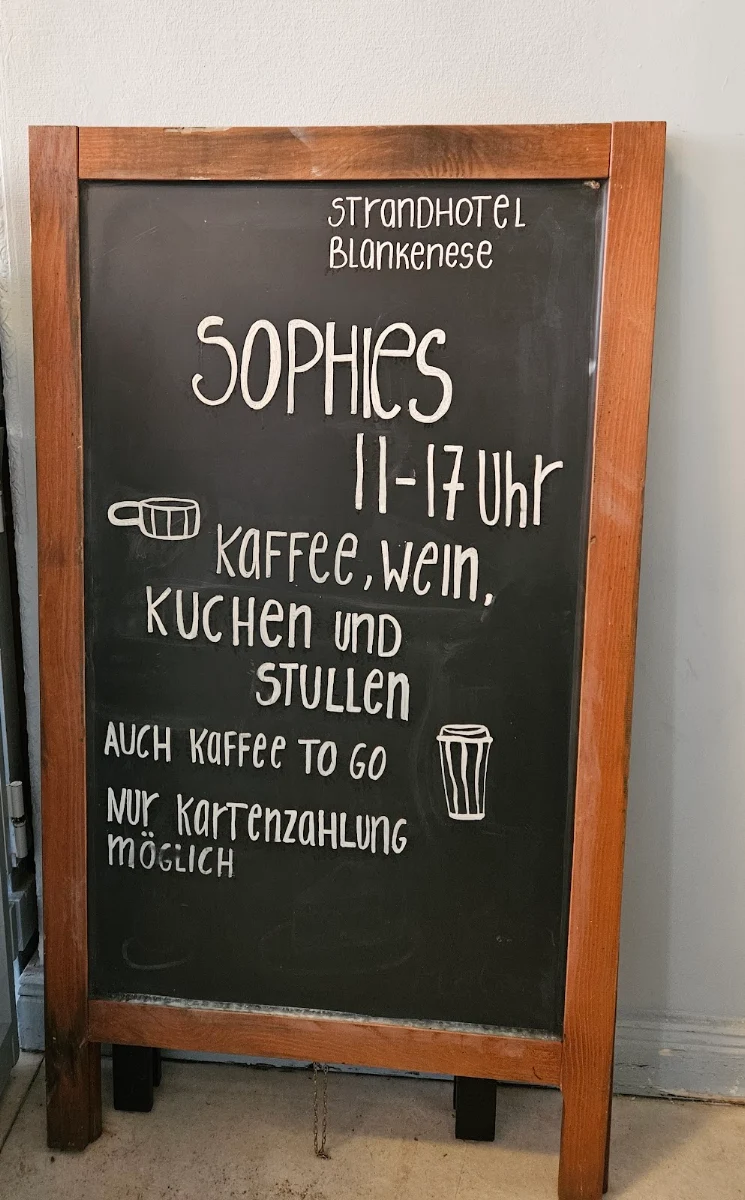 STRANDHOTEL
BLANKENESE
SOPHIES
11-17 Uhr
KAFFEE, WEIN,
KUCHEN UND
STULLEN
AUCH KAFFEE TO GO
NUR KARTENZAHLUNG
MÖGLICH